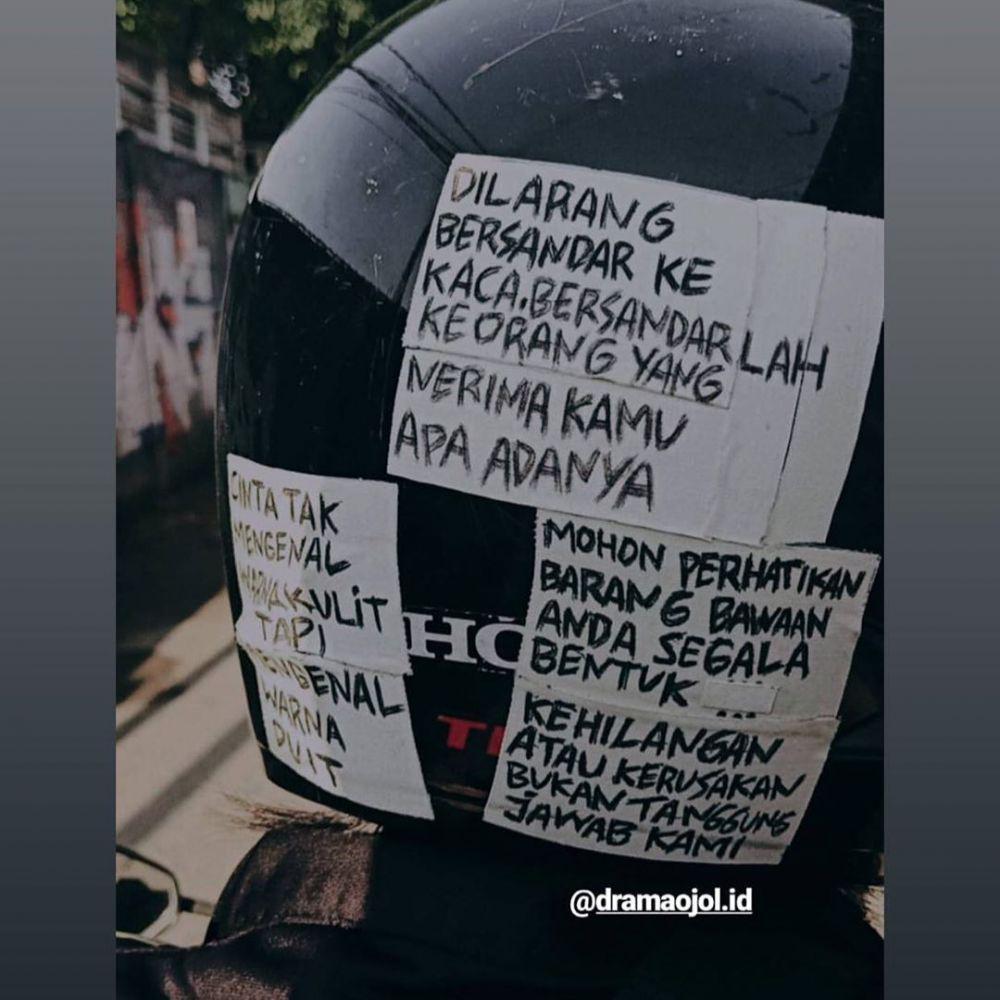 DILARANG
BERSANDAR KE
KACA.BERSANDARLAH
KEORANG YANG
NERIMA KAMU
APA ADANYA
CINTA TAK
MENGENAL
WARNA KULiT
TAPI
MENGENAL
WARNA
DUIT
HO
MOHON PERHATIKAN
BARANG BAWAAN
ANDA SEGALA
BENTUK
KEHILANGAN
ATAU KERUSAKAN
BUKAN TANGGUNG
JAWAB KAMI
@dramaojol.id